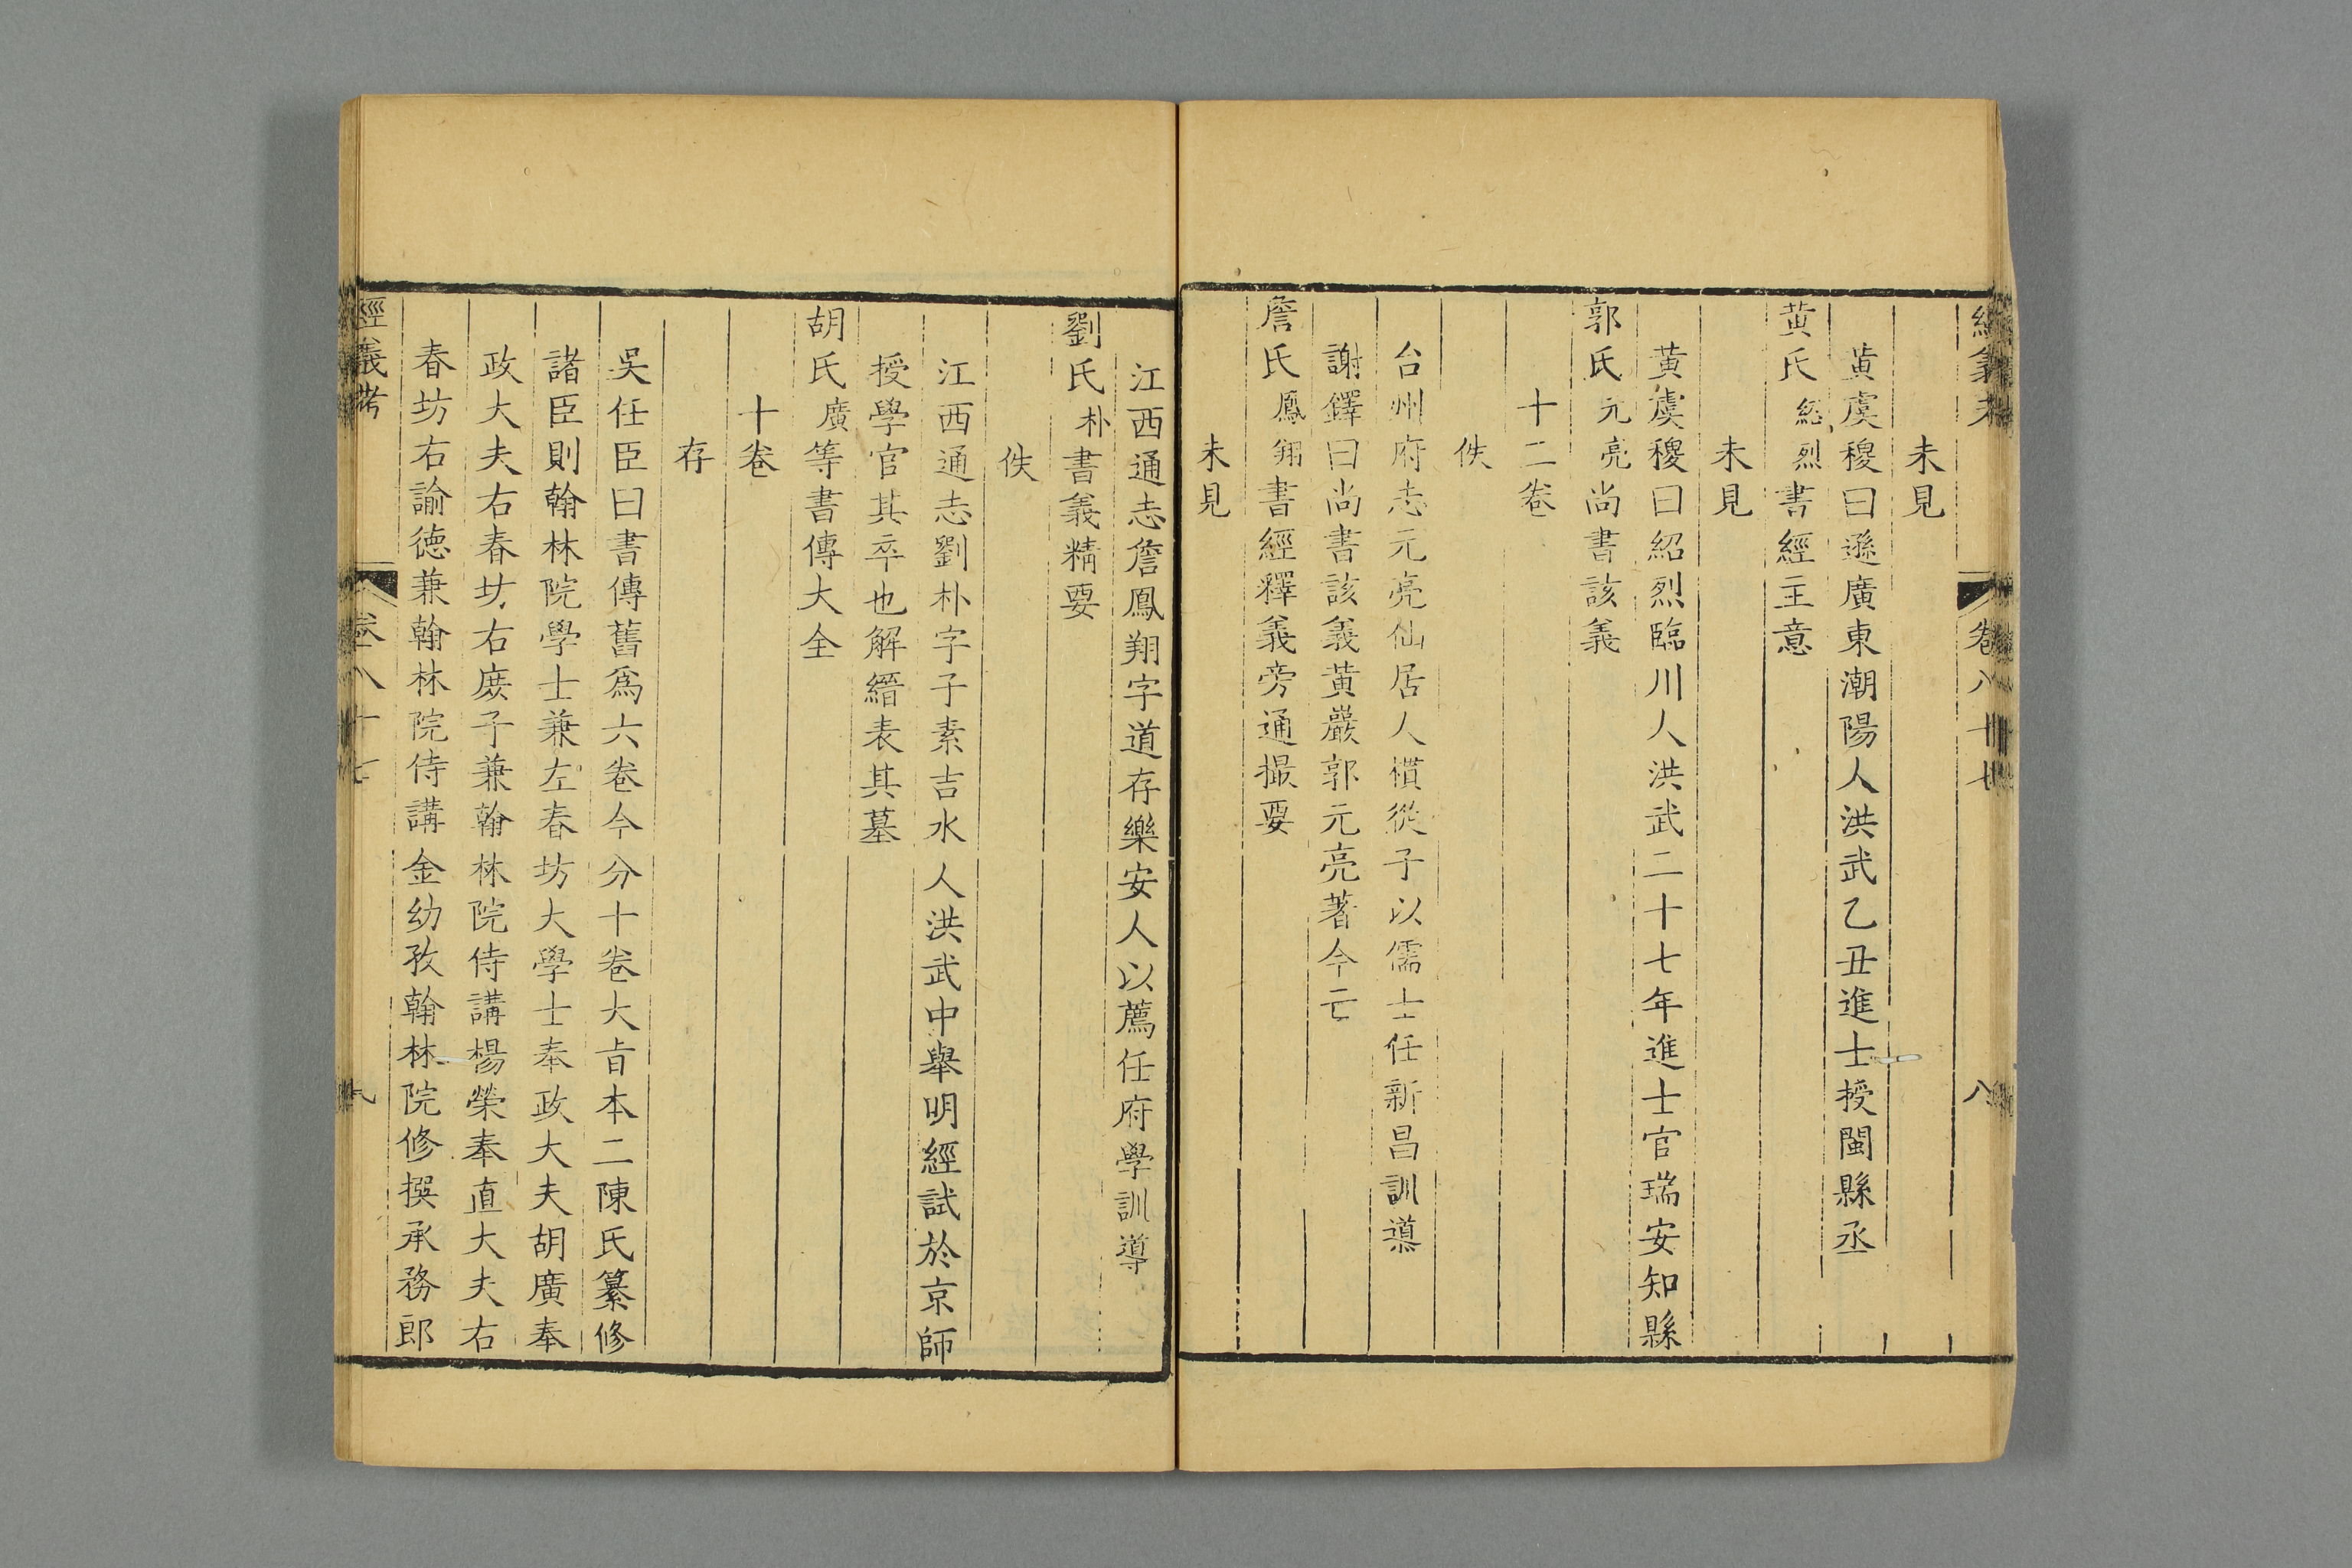 經義考 卷八十七 八
未見
黃虞稷曰遜廣東潮陽人洪武乙丑進士授閩縣丞
黃氏紹烈書經主意
未見
黃虞稷曰紹烈臨川人洪武二十七年進士官瑞安知縣
郭氏元亮尚書該義
十二卷
佚
台州府志元亮仙居人樌從子以儒士任新昌訓導
謝鐸曰尚書該義黃巖郭元亮著今亡
詹氏鳳翔書經釋義旁通撮要
未見
江西通志詹鳳翔字道存樂安人以薦任府學訓導
劉氏朴書義精要
佚
江西通志劉朴字子素吉水人洪武中舉明經試於京師
授學官其卒也解縉表其墓
胡氏廣等書傳大全
十卷
存
吳任臣曰書傳舊爲六卷今分十卷大旨本二陳氏纂修
諸臣則翰林院學士兼左春坊大學士奉政大夫胡廣奉
政大夫右春坊右庻子兼翰林院侍講楊榮奉直大夫右
春坊右諭德兼翰林院侍講金幼孜翰林院修撰承務郎
經義考 卷八十七